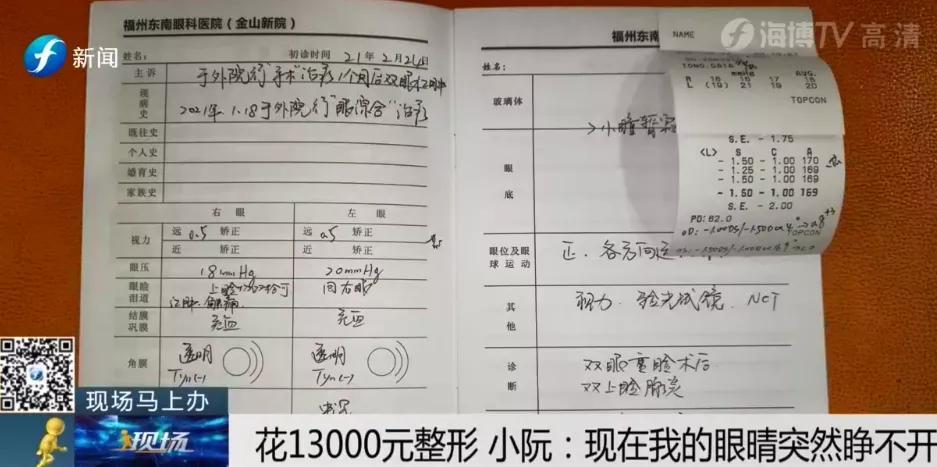 新闻
海博TV高清
福州东南眼科医院(金山新院)
姓名:
初诊时间 21年2月26日
主诉
现病史
2021年1.18于外院行"眼综合"治疗
既往史
个人史
婚育史
家族史
右眼 左眼
视力
远 0.5 矫正 远 0.5 矫正
近 矫正 近 矫正
眼压 18mmHg 20mmHg
眼睑泪道
同右眼
结膜巩膜 充血 充血
角膜 透明 透明
Tyn(-) Tyn(-)
福州东南
姓名:
玻璃体
眼底
眼位及眼球运动 正、各方向运
其他 视力、验光试镜、NCT
诊断 双眼重睑术后
双上睑腺炎
NAME
AVG.
R 18 16 17 18
L (19) 21 19 20
TOPCON
S.E. - 1.75
<L> S C A
- 1.50 - 1.00 170
- 1.25 - 1.00 169
- 1.50 - 1.00 169
- 1.50 - 1.00 169
S.E. - 2.00
PD: 62.0
TOPCON
现场马上办
现场
花13000元整形 小阮:现在我的眼睛突然睁不开